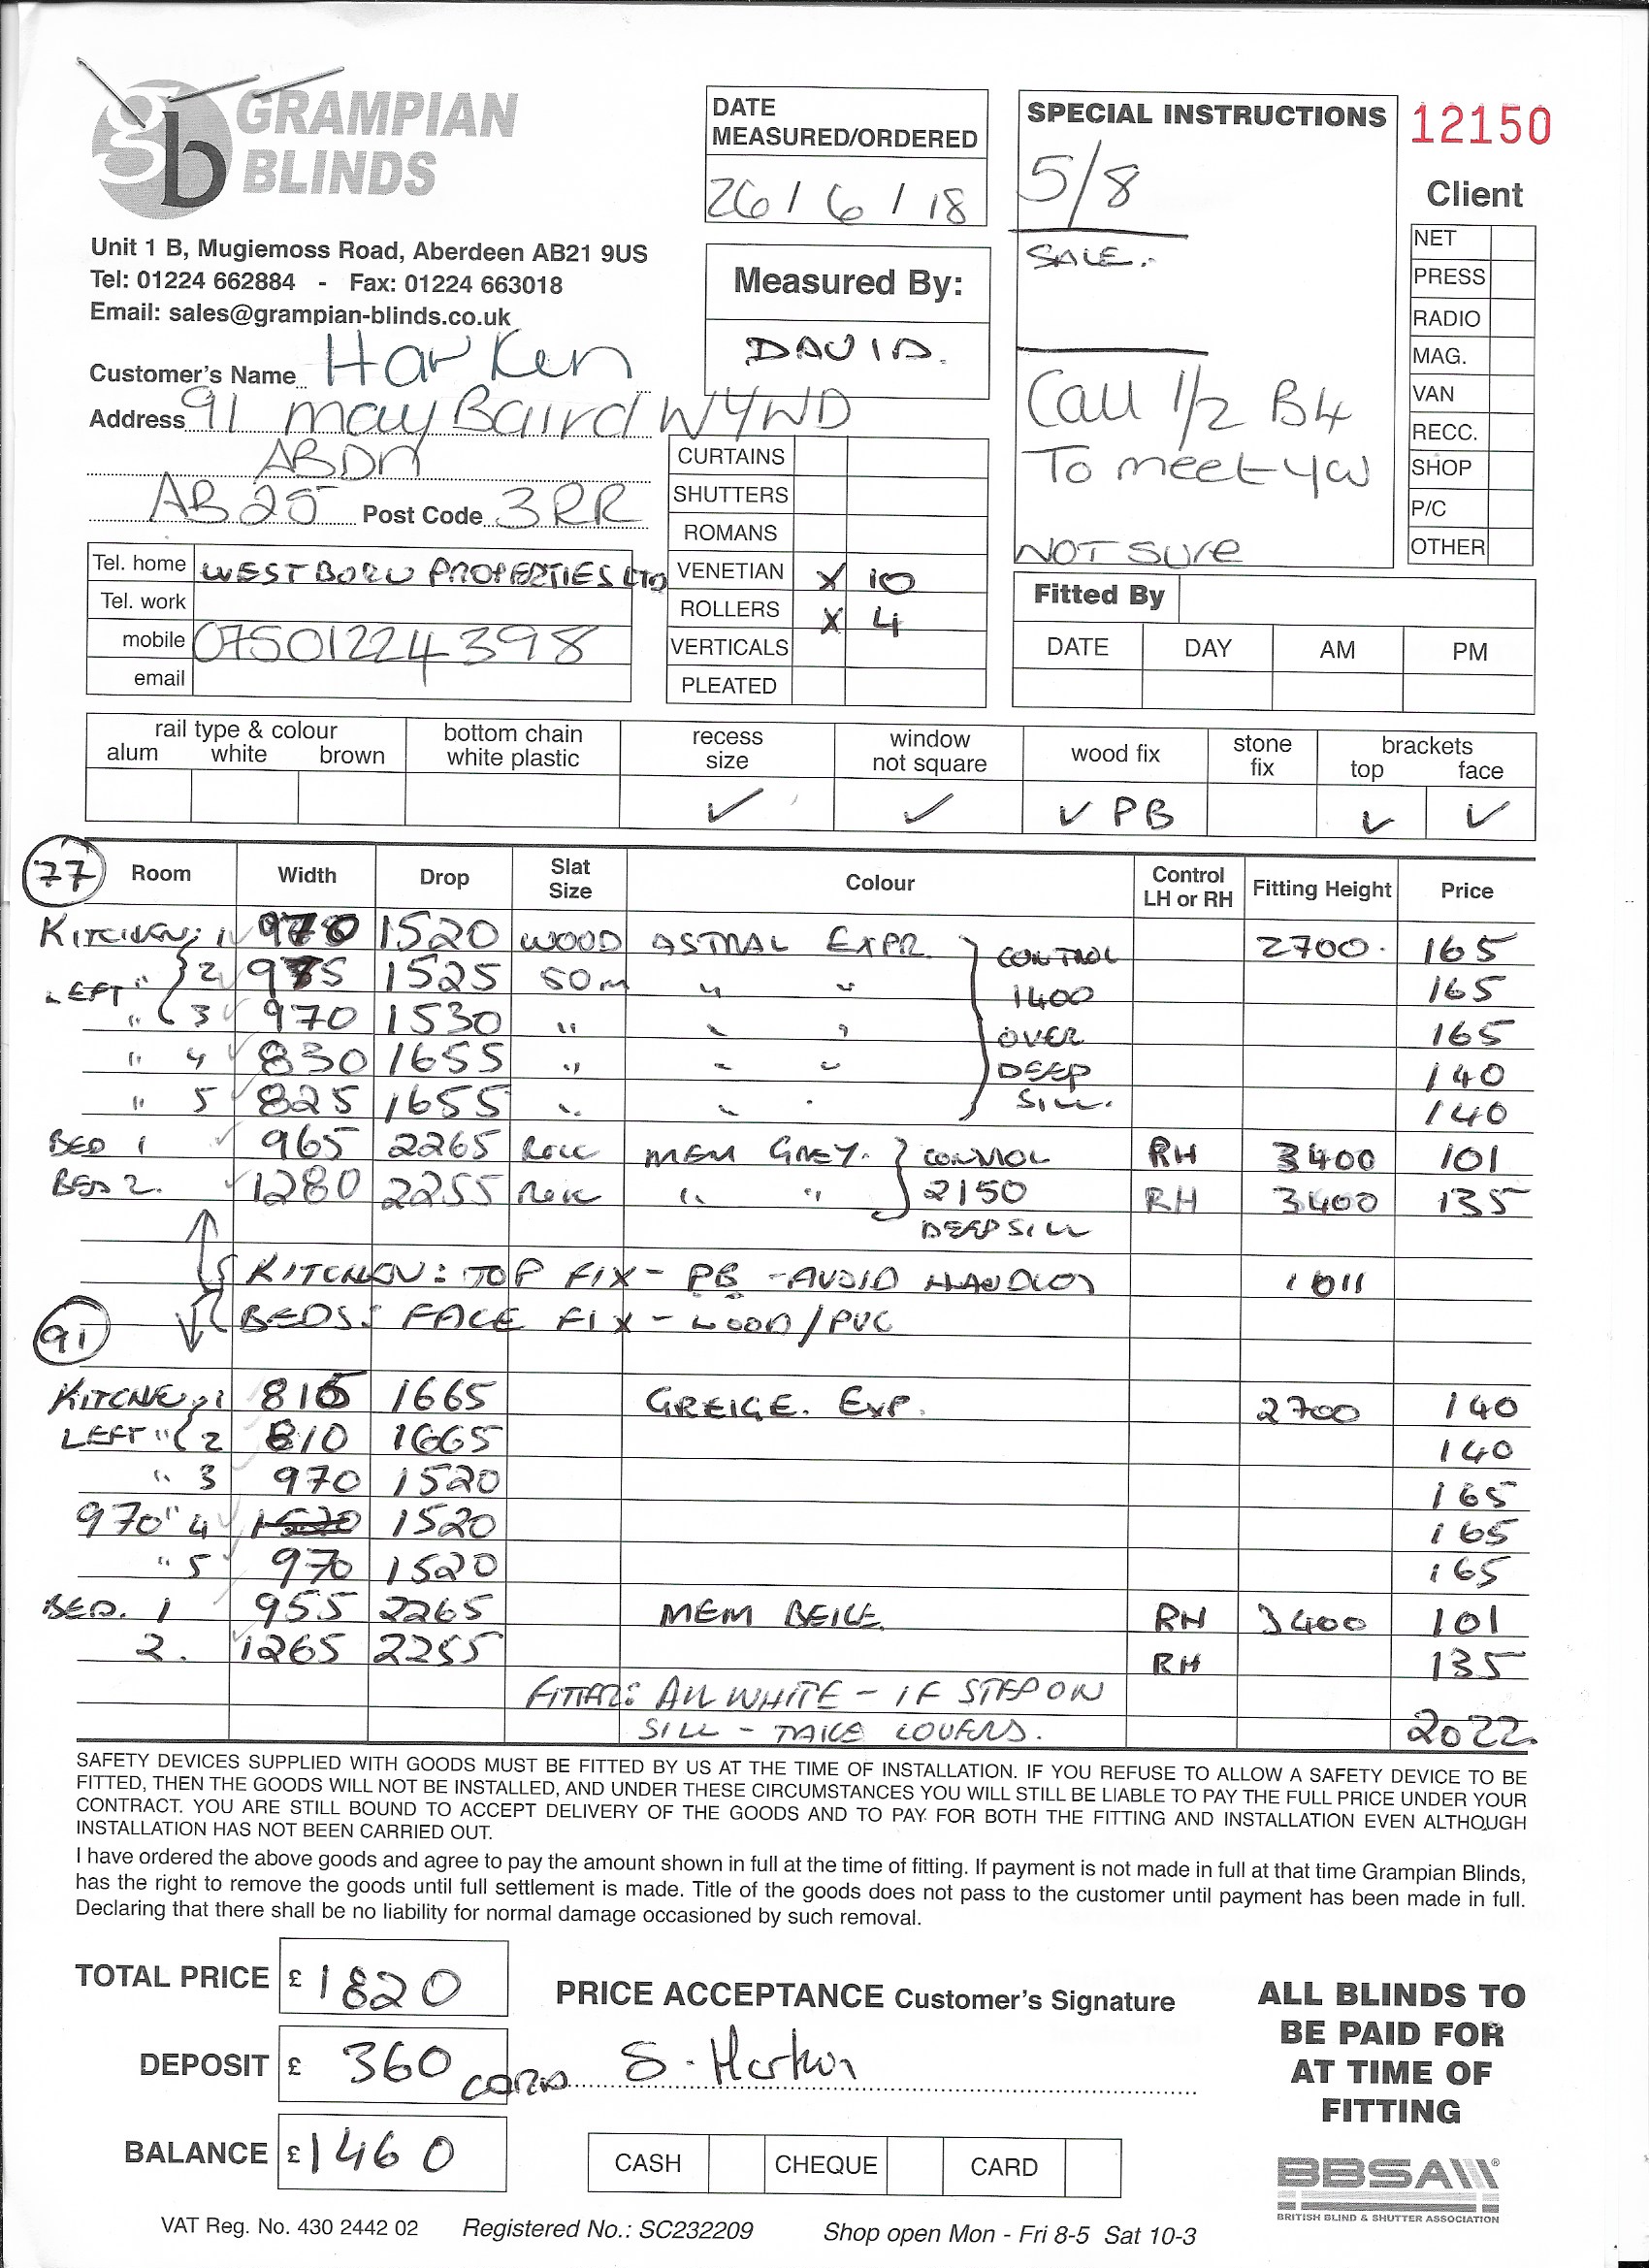 GRAMPIAN
BLINDS
Unit 1 B, Mugiemoss Road, Aberdeen AB21 9US
Tel: 01224 662884 - Fax: 01224 663018
Email: sales@grampian-blinds.co.uk
DATE
MEASURED/ORDERED
26/6/18
Measured By:
DAVID.
SPECIAL INSTRUCTIONS
5/8
SALE.
Call 1/2 B4
To meet yw
NOT SURE
12150
Client
NET
PRESS
RADIO
MAG.
VAN
RECC.
SHOP
P/C
OTHER
Customer's Name Harken
Address 91 may Baird WYND
ABDN
AB25 Post Code 3RR
Tel. home WESTBORU PROPERTIES LTD
Tel. work
mobile 07501224398
email
CURTAINS
SHUTTERS
ROMANS
VENETIAN X 10
ROLLERS X 4
VERTICALS
PLEATED
Fitted By
DATE DAY AM PM
rail type & colour
alum white brown
bottom chain
white plastic
recess
size
window
not square
wood fix
stone
fix
brackets
top face
✓ ✓ ✓ PB ✓ ✓
77 Room Width Drop Slat Size Colour Control LH or RH Fitting Height Price
KITCHEN: 1 970 1520 WOOD ASTRAL EXPR. CONTROL 2700. 165
LEFT " 2 975 1525 50m " " 1400 165
" 3 970 1530 " " " OVER 165
" 4 830 1655 " " " DEEP 140
" 5 825 1655 " " " SILL. 140
BED 1 965 2265 ROLL MEM GREY. CONTROL RH 3400 101
BED 2. 1280 2255 ROLL " " 2150 RH 3400 135
DEEP SILL
KITCHEN: TOP FIX - PB - AVOID HANDLES 1011
BEDS: FACE FIX - WOOD/PVC
91
KITCHEN: 1 815 1665 GREIGE. EXP. 2700 140
LEFT " 2 810 1665 140
" 3 970 1520 165
970 " 4 1520 1520 165
" 5 970 1520 165
BED. 1 955 2265 MEM BEIGE RH 3400 101
2. 1265 2255 RH 135
FITTERS: ALL WHITE - IF STEP ON
SILL - TAKE COVERS. 2022.
SAFETY DEVICES SUPPLIED WITH GOODS MUST BE FITTED BY US AT THE TIME OF INSTALLATION. IF YOU REFUSE TO ALLOW A SAFETY DEVICE TO BE
FITTED, THEN THE GOODS WILL NOT BE INSTALLED, AND UNDER THESE CIRCUMSTANCES YOU WILL STILL BE LIABLE TO PAY THE FULL PRICE UNDER YOUR
CONTRACT. YOU ARE STILL BOUND TO ACCEPT DELIVERY OF THE GOODS AND TO PAY FOR BOTH THE FITTING AND INSTALLATION EVEN ALTHOUGH
INSTALLATION HAS NOT BEEN CARRIED OUT.
I have ordered the above goods and agree to pay the amount shown in full at the time of fitting. If payment is not made in full at that time Grampian Blinds,
has the right to remove the goods until full settlement is made. Title of the goods does not pass to the customer until payment has been made in full.
Declaring that there shall be no liability for normal damage occasioned by such removal.
TOTAL PRICE £ 1820
PRICE ACCEPTANCE Customer's Signature
DEPOSIT £ 360 CARD S. Harken
BALANCE £ 1460
CASH CHEQUE CARD
ALL BLINDS TO
BE PAID FOR
AT TIME OF
FITTING
BBSA
BRITISH BLIND & SHUTTER ASSOCIATION
VAT Reg. No. 430 2442 02 Registered No.: SC232209 Shop open Mon - Fri 8-5 Sat 10-3